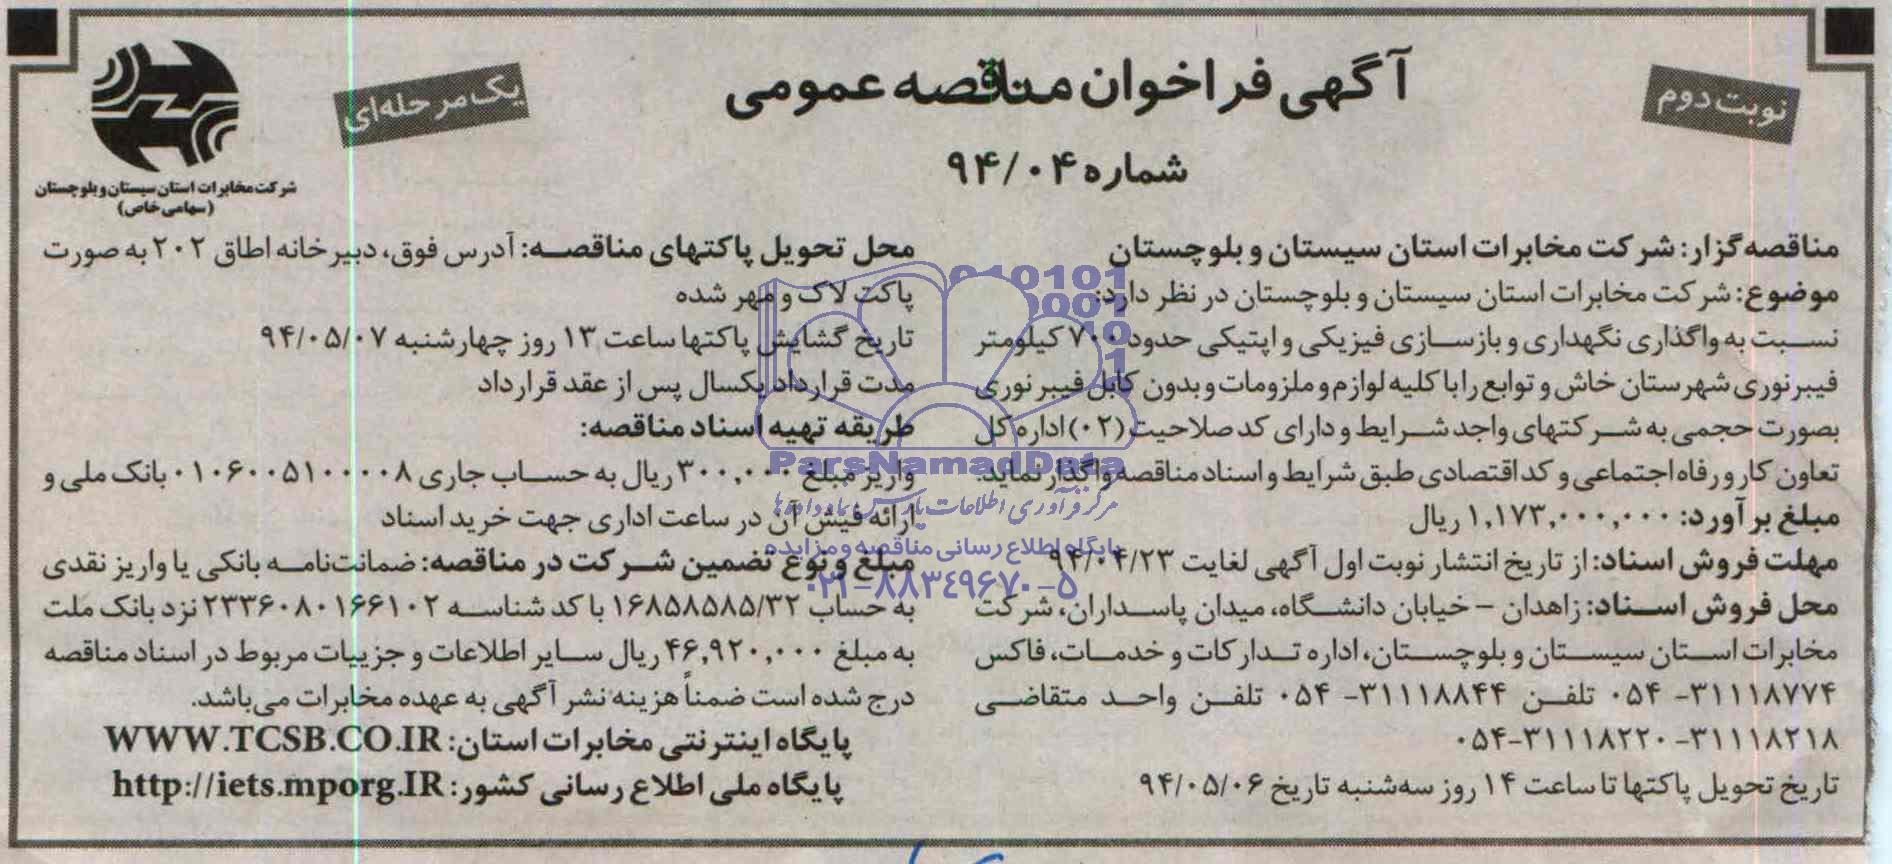 آگهی فراخوان مناقصه عمومی
شماره ۹۴/۰۴
نوبت دوم
یک مرحله‌ای
شرکت مخابرات استان سیستان و بلوچستان
(سهامی خاص)
مناقصه گزار: شرکت مخابرات استان سیستان و بلوچستان
موضوع: شرکت مخابرات استان سیستان و بلوچستان در نظر دارد:
نسبت به واگذاری نگهداری و بازسازی فیزیکی و اپتیکی حدود ۷۰۰ کیلومتر
فیبرنوری شهرستان خاش و توابع را با کلیه لوازم و ملزومات و بدون کابل فیبر نوری
بصورت حجمی به شرکتهای واجد شرایط و دارای کد صلاحیت (۰۲) اداره کل
تعاون کار و رفاه اجتماعی و کد اقتصادی طبق شرایط و اسناد مناقصه واگذار نماید.
مبلغ برآورد: ۱,۱۷۳,۰۰۰,۰۰۰ ریال
مهلت فروش اسناد: از تاریخ انتشار نوبت اول آگهی لغایت ۹۴/۰۴/۲۳
محل فروش اسناد: زاهدان – خیابان دانشگاه، میدان پاسداران، شرکت
مخابرات استان سیستان و بلوچستان، اداره تدارکات و خدمات، فاکس
۳۱۱۱۸۷۷۴- ۰۵۴ تلفن ۳۱۱۱۸۸۴۴- ۰۵۴ تلفن واحد متقاضی
۳۱۱۱۸۲۱۸-۰۵۴-۳۱۱۱۸۲۲۰
تاریخ تحویل پاکتها تا ساعت ۱۴ روز سه‌شنبه تاریخ ۹۴/۰۵/۰۶
محل تحویل پاکتهای مناقصه: آدرس فوق، دبیرخانه اطاق ۲۰۲ به صورت
پاکت لاک و مهر شده
تاریخ گشایش پاکتها ساعت ۱۳ روز چهارشنبه ۹۴/۰۵/۰۷
مدت قرارداد یکسال پس از عقد قرارداد
طریقه تهیه اسناد مناقصه:
واریز مبلغ ۳۰۰,۰۰۰ ریال به حساب جاری ۰۱۰۶۰۰۵۱۰۰۰۰۸ بانک ملی و
ارائه فیش آن در ساعت اداری جهت خرید اسناد
مبلغ و نوع تضمین شرکت در مناقصه: ضمانت‌نامه بانکی یا واریز نقدی
به حساب ۱۶۸۵۸۵۸۵/۳۲ با کد شناسه ۲۳۳۶۰۸۰۱۶۶۱۰۲ نزد بانک ملت
به مبلغ ۴۶,۹۲۰,۰۰۰ ریال سایر اطلاعات و جزییات مربوط در اسناد مناقصه
درج شده است ضمناً هزینه نشر آگهی به عهده مخابرات می‌باشد.
پایگاه اینترنتی مخابرات استان: WWW.TCSB.CO.IR
پایگاه ملی اطلاع رسانی کشور: http://iets.mporg.IR
ParsNamadData
مرکز فرآوری اطلاعات پارس نماد داده‌ها
پایگاه اطلاع رسانی مناقصه و مزایده
۰۲۱-۸۸۳۴۹۶۷۰-۵